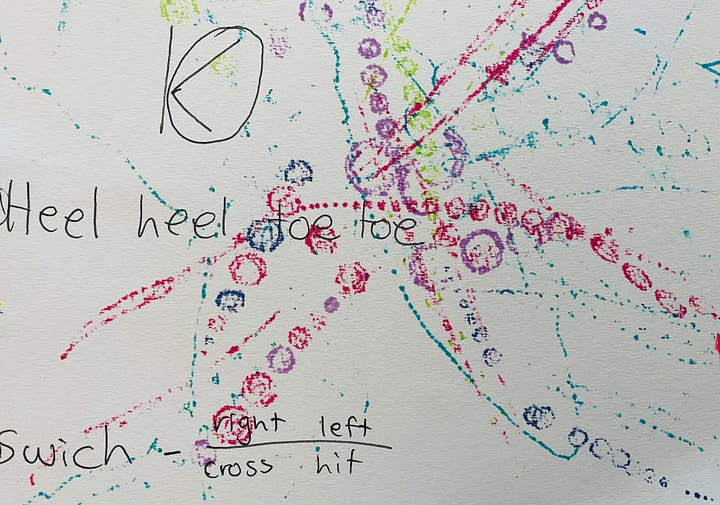 K
Heel heel toe toe
Swich - right left
cross hit